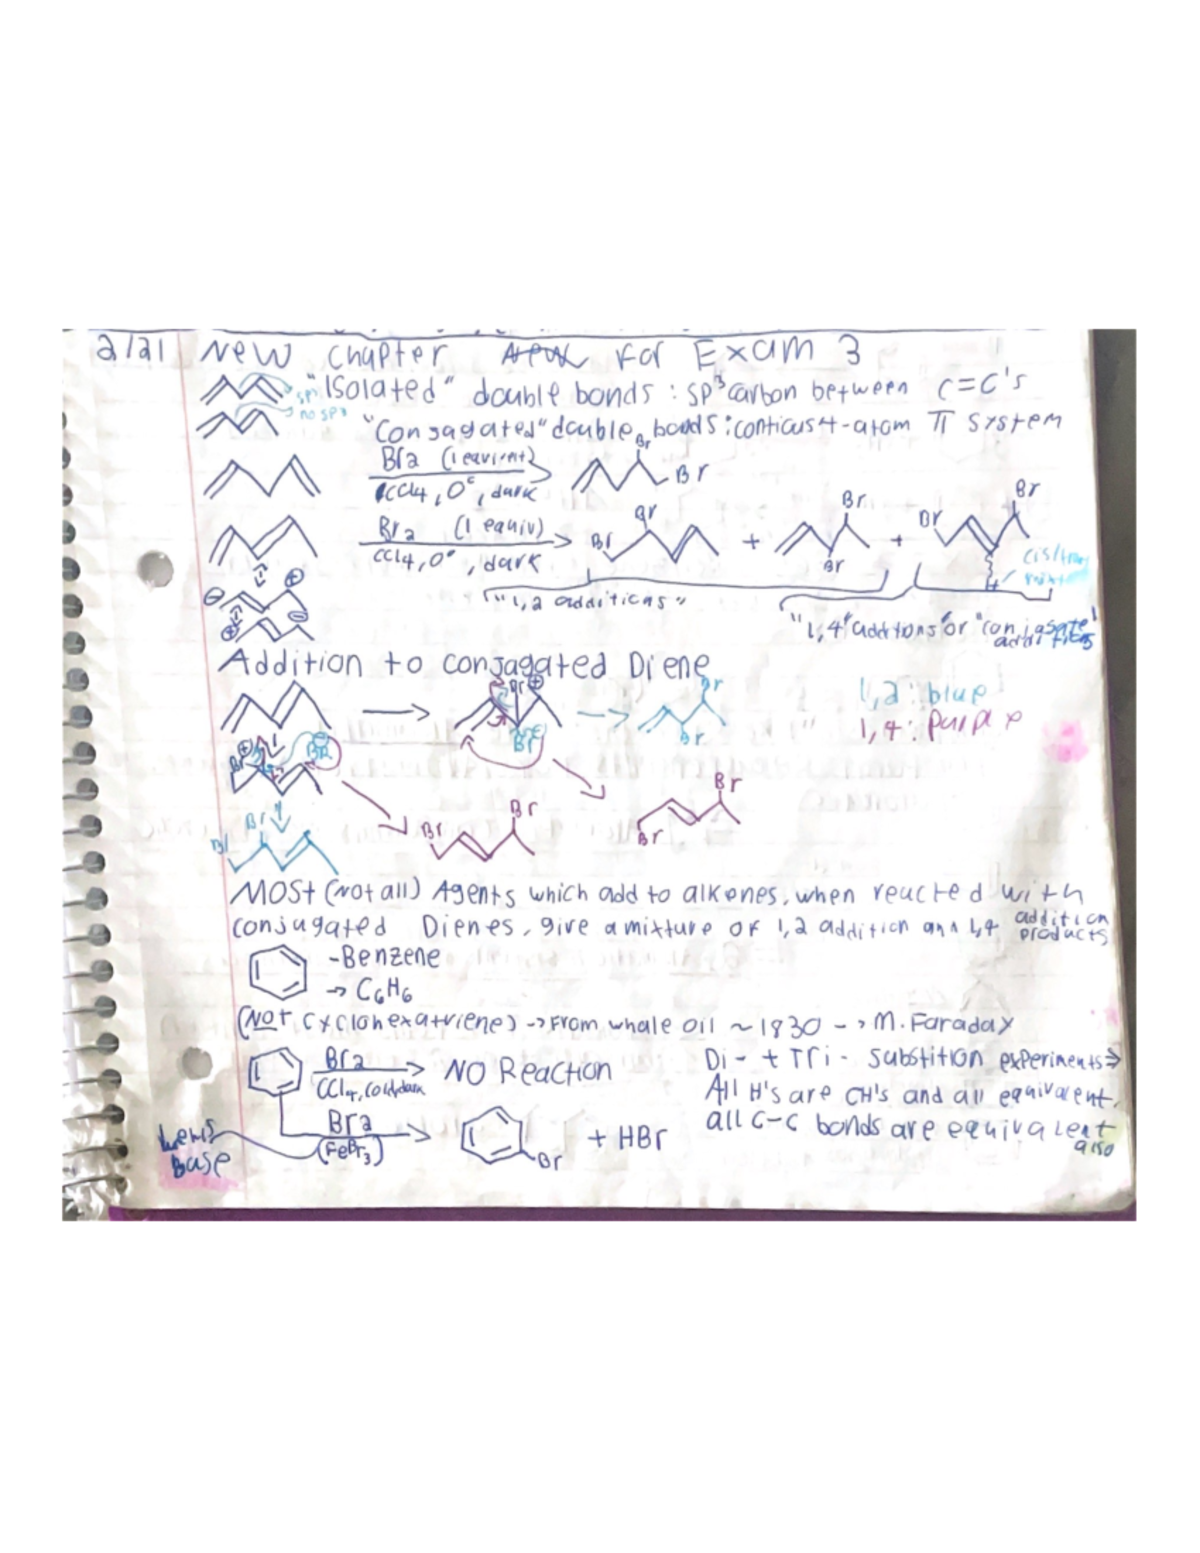 2/21 New Chapter New For Exam 3
"Isolated" double bonds : sp³ carbon between C=C's
sp³
no sp³
"Conjagated" double bonds : conticus 4-atom π system
Br2 (1 equivent)
CCl4, 0°, dark
Br
Br
Br2 (1 equiv)
CCl4, 0°, dark
Br
Br
+
Br
Br
+
Br
Br
H
⊕
⊖
⊖
⊕
"1,2 additions"
"1,4" additions or "conjagate" additions
Addition to conjagated Diene
1,2 : blue
1,4 : Purple
Br ⊕
Br ⊖
Br
Br
⊕ Br
Br ⊖
Br
Br
Br
Br
Br
Br
MOST (Not all) Agents which add to alkenes, when reacted with
conjugated Dienes, give a mixture of 1,2 addition and 1,4 addition products
-Benzene
→ C6H6
(Not, Cyclohexatriene) → From whale oil ~1830 → M. Faraday
Br2
CCl4, cold, dark
NO Reaction
Di- + Tri- substition experiments →
All H's are CH's and all equivalent,
all C-C bonds are equivalent also
Lewis Base
Br2
(FeBr3)
Br
+ HBr